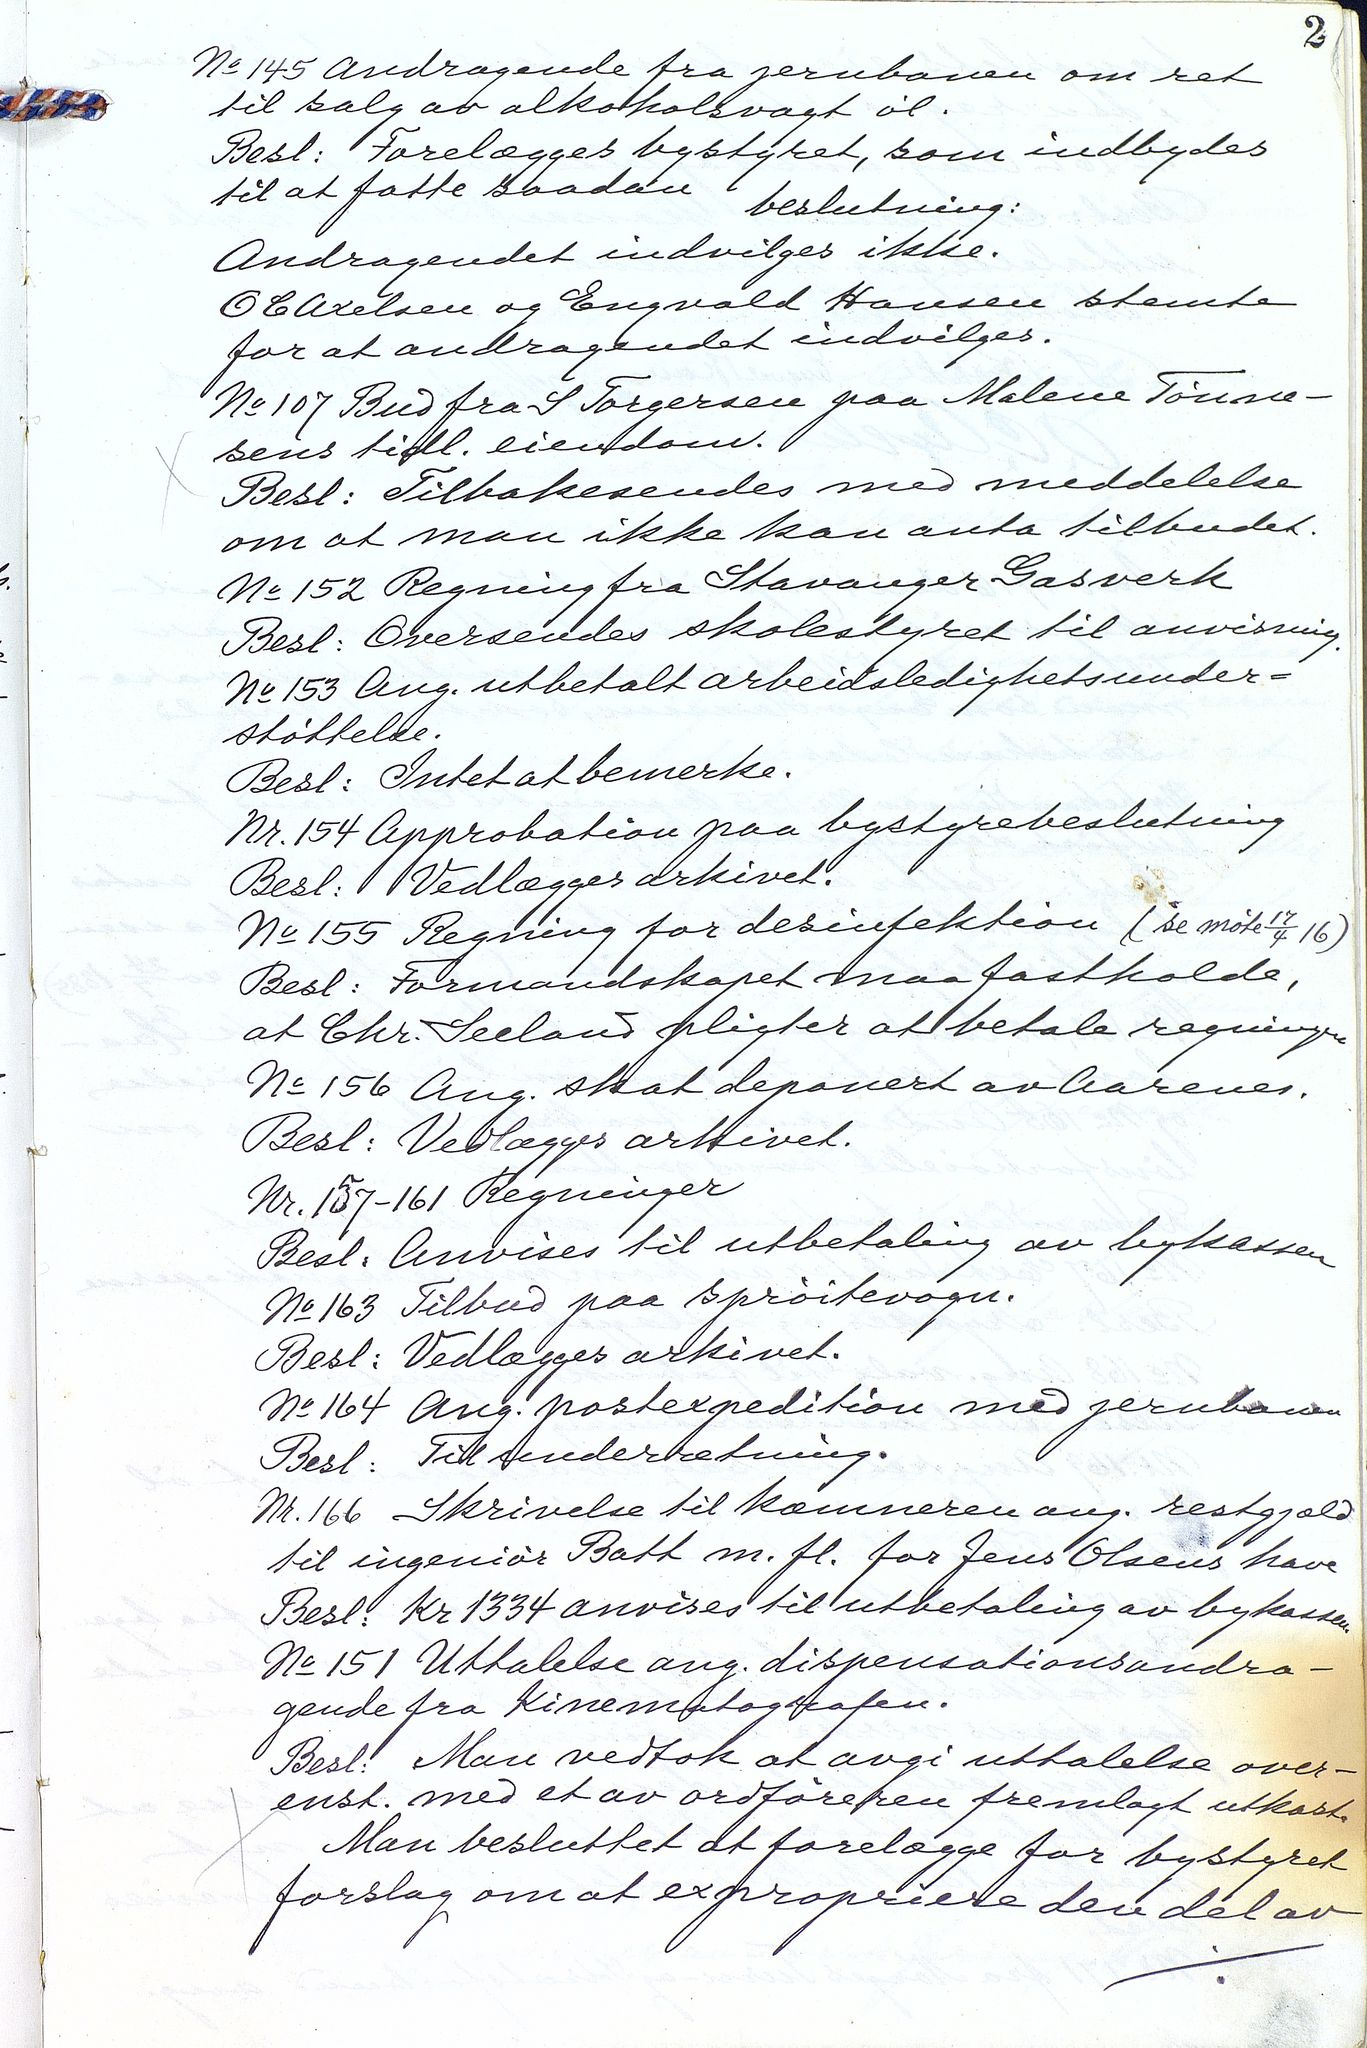 2
No 145 Andragende fra jernbanen om ret
til salg av alkoholsvagt øl.
Besl: Forelægges bystyret, som indbydes
til at fatte saadan beslutning:
Andragendet indvilges ikke.
O C Axelsen og Engvald Hansen stemte
for at andragendet indvilges.
No 107 Bud fra S Torgersen paa Malene Tönne-
sens tidl. eiendom.
Besl: Tilbakesendes med meddelelse
om at man ikke kan anta tilbudet.
No 152 Regning fra Stavanger Gasverk
Besl: Oversendes skolestyret til anvisning.
No 153 Ang. utbetalt arbeidsledighetsunder=
støttelse.
Besl: Intet at bemerke.
Nr. 154 Approbation paa bystyrebeslutning
Besl: Vedlægges arkivet.
No 155 Regning for desinfektion (se møte 17/4 16)
Besl: Formandskapet maa fastholde,
at Chr. Seeland pligter at betale regningen
No 156 Ang. skat deponert av Aarenes.
Besl: Vedlægges arkivet.
Nr. 157-161 Regninger
Besl. Anvises til utbetaling av bykassen
No 163 Tilbud paa sprøitevogn.
Besl: Vedlægges arkivet.
No 164 Ang. postexpedition med jernbanen
Besl: Til underretning.
Nr. 166 Skrivelse til kæmneren ang. restgjæld
til ingeniør Batt m. fl. for Jens Olsens have
Besl: Kr 1334 anvises til utbetaling av bykassen.
No 151 Uttalelse ang. dispensationsandra-
gende fra Kinematografen.
Besl: Man vedtok at avgi uttalelse over-
enst. med et av ordføreren fremlagt utkast.
Man besluttet at forelægge for bystyret
forslag om at expropriere den del av
./.